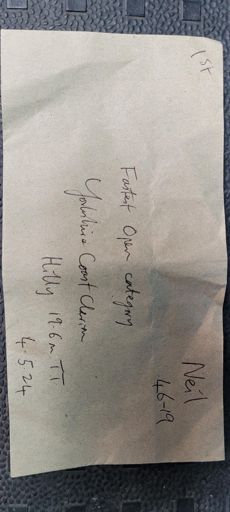 1st
Neil
46-19
Fastest Open category
Yorkshire Coast Clarion
Hilly 19.6m TT
4.5.24